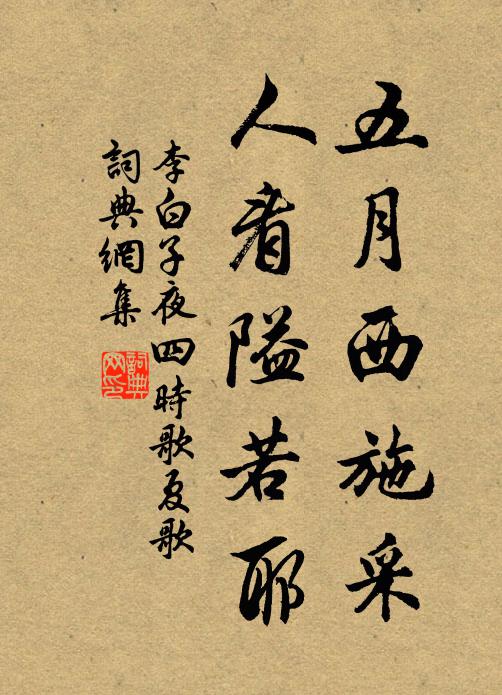 五月西施采
人看隘若耶
李白子夜四時歌夏歌
詞典網集
詞典
网印